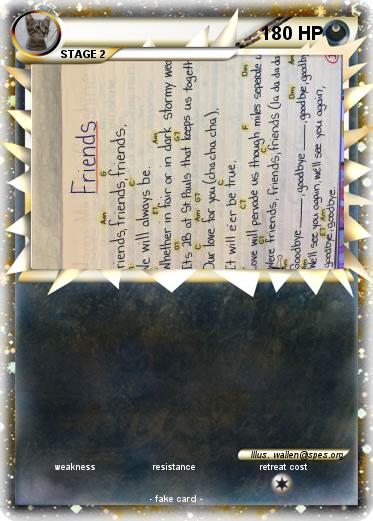 180 HP
STAGE 2
Friends
Friends, friends, friends,
We will always be.
Whether in fair or in dark stormy wea
Its 2B at St Pauls that keeps us togeth
Our love for you (cha cha cha).
It will e'er be true.
Love will pervade us though miles seperate u
Were friends, friends, friends (la da da da
Goodbye ——, goodbye ——, goodbye, goodby
We'll see you again, we'll see you again,
goodbye, goodbye.
Illus. wallen@spes.org
weakness resistance retreat cost
- fake card -